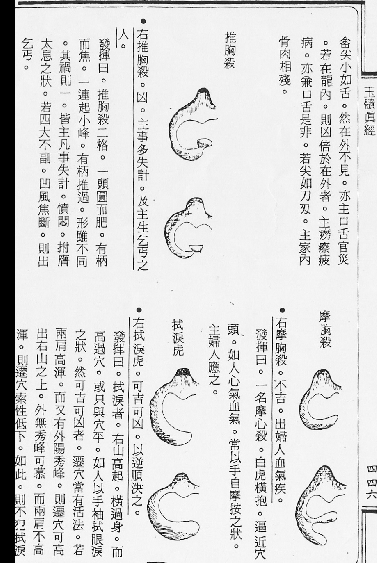 玉髓真經
四四六
畲尖小如舌。然在外不見。亦主口舌官災
。若在龍內。則凶倍於在外者。主癆瘵疲
病。亦兼口舌是非。若尖如刀刃。主家內
骨肉相殘。
推胸殺
右推胸殺。凶。主事多失計。及主生乞丐之
人。
發揮曰。推胸殺二格。一頭圓而肥。有柄
而焦。一連起小峰。有柄推過。形雖不同
。其禍則一。皆主凡事失計。憤悶。拊膺
太息之狀。若四大不副。凹風焦斷。則出
乞丐。
摩胸殺
右摩胸殺。不吉。出婦人血氣疾。
發揮曰。一名摩心殺。白虎橫抱。逼近穴
頭。如人心氣血氣。常以手自摩按之狀。
主婦人應之。
拭淚虎
右拭淚虎。可吉可凶。以逆順決之。
發揮曰。拭淚者。右山高起。橫過身。而
高過穴。或只與穴平。如人以手袖拭眼淚
之狀。然可吉可凶者。要穴當有活法。若
兩肩高渾。而又有外陽秀峰。則要穴可高
出右山之上。外無秀峰可慕。而兩肩不高
渾。則要穴索性低下。如此。則不為拭淚